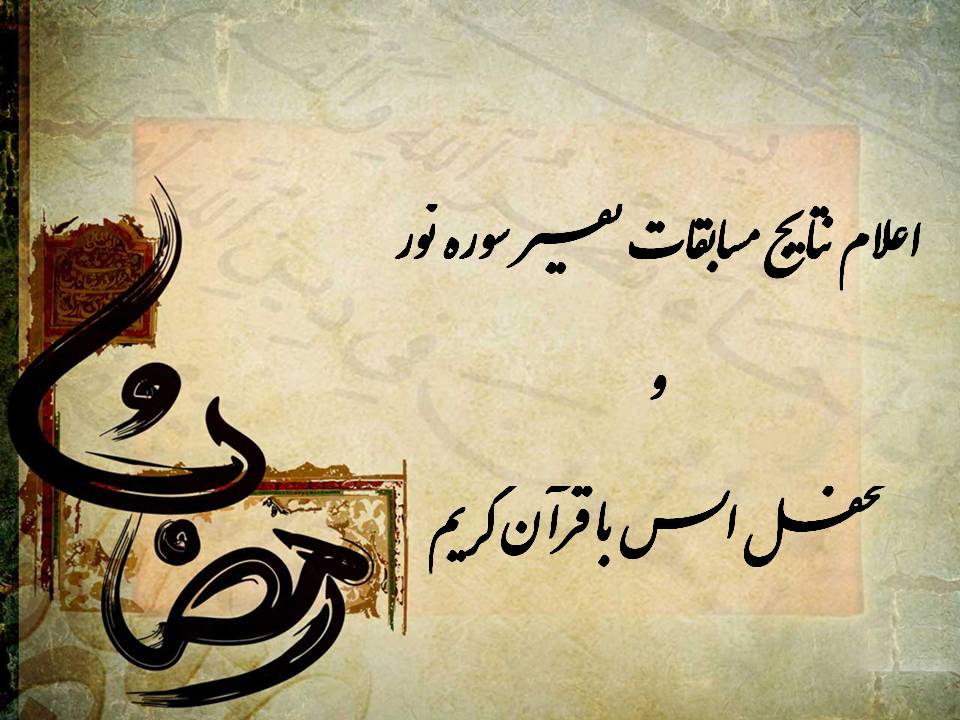 اعلام نتایج مسابقات تفسیر سوره نور
و
محفل انس با قرآن کریم
رمضان